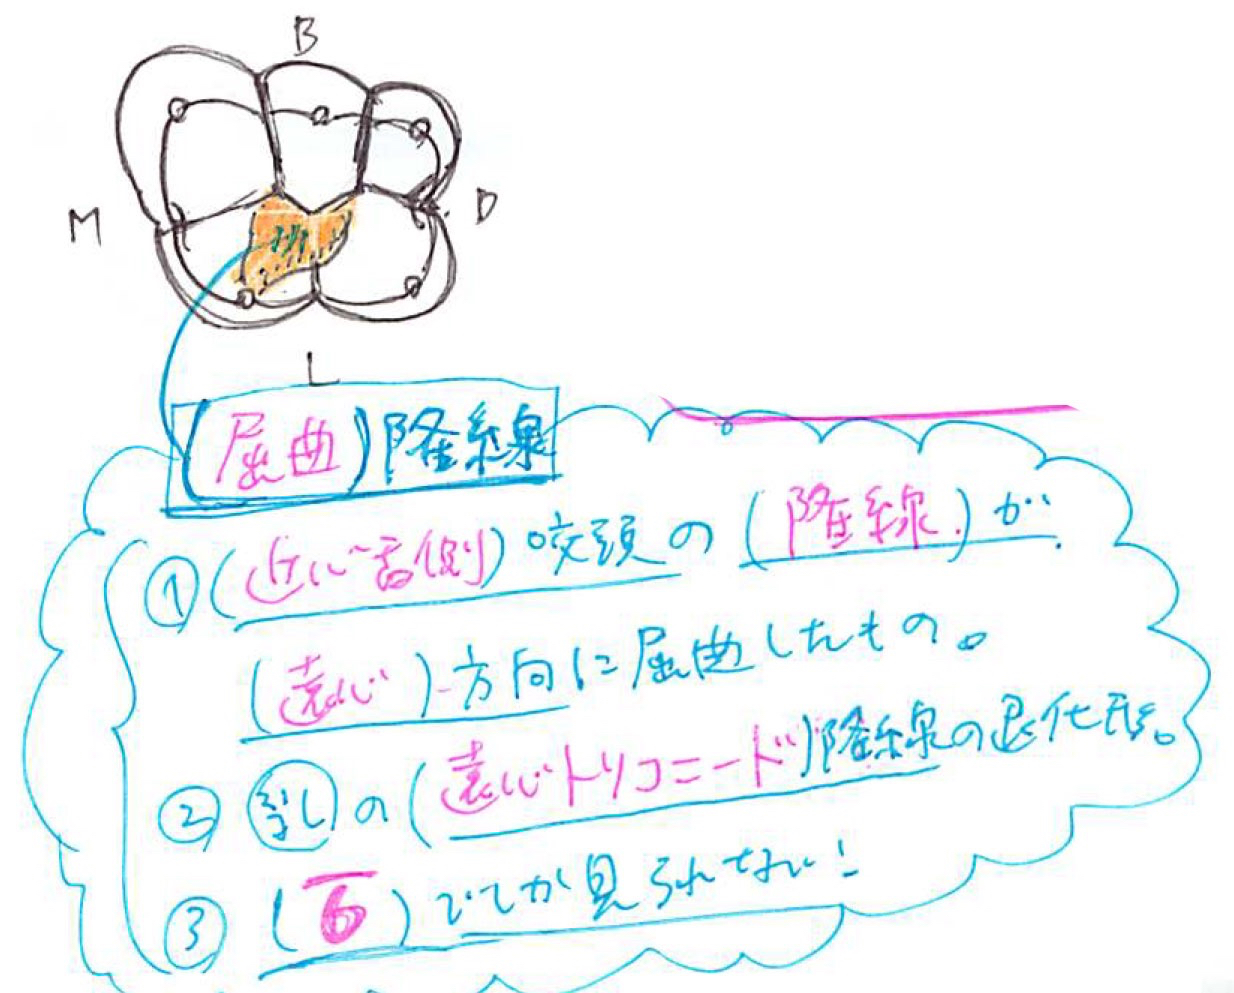 B
M
D
L
(屈曲)隆線
①(近心舌側)咬頭の(隆線)が
(遠心)方向に屈曲したもの。
②乳の(遠心トリコニード)隆線の退化形。
③(6)でしか見られない!